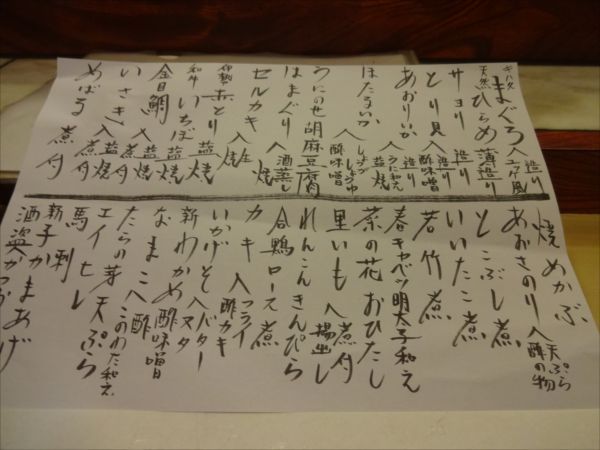 キハダ まぐろ 造り ユッケ風
天然 ひらめ 薄造り
サヨリ 造り
とり貝 造り 酢味噌
あおりいか 造り うに和え 塩焼
ほたるいか しゃぶしゃぶ しょうゆ 酢味噌
うにのせ胡麻豆腐
はまぐり 酒蒸し 焼
セルカキ 生 焼
伊勢赤どり 塩焼
和牛 いちぼ 塩焼
金目鯛 塩焼 煮付
いさき 塩焼 煮付
めばる 煮付
焼めかぶ
あおさのり 天ぷら 酢の物
とこぶし煮
いいたこ煮
若竹煮
春キャベツ明太子和え
菜の花おひたし
里いも 煮付 揚出し
れんこんきんぴら
合鴨ロース煮
カキ フライ 酢カキ
いかげそ バター
新わかめ ヌタ 酢味噌
なまこ 酢 このわた和え
たらの芽天ぷら
エイヒレ
馬刺
新子かまあげ
酒盗